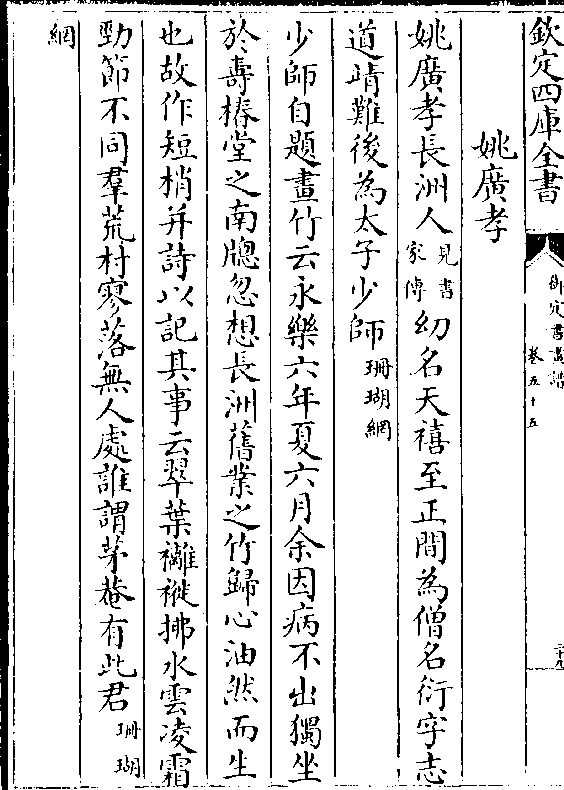 欽定四庫全書
御定書畫譜
卷五十五
姚廣孝
姚廣孝長洲人見書家傳幼名天禧至正間為僧名衍字志
道靖難後為太子少師珊瑚網
少師自題畫竹云永樂六年夏六月余因病不出獨坐
於壽椿堂之南牕忽想長洲舊業之竹歸心油然而生
也故作短梢并詩以記其事云翠葉襳褷拂水雲凌霜
勁節不同羣荒村寥落無人處誰謂茅菴有此君珊瑚
網